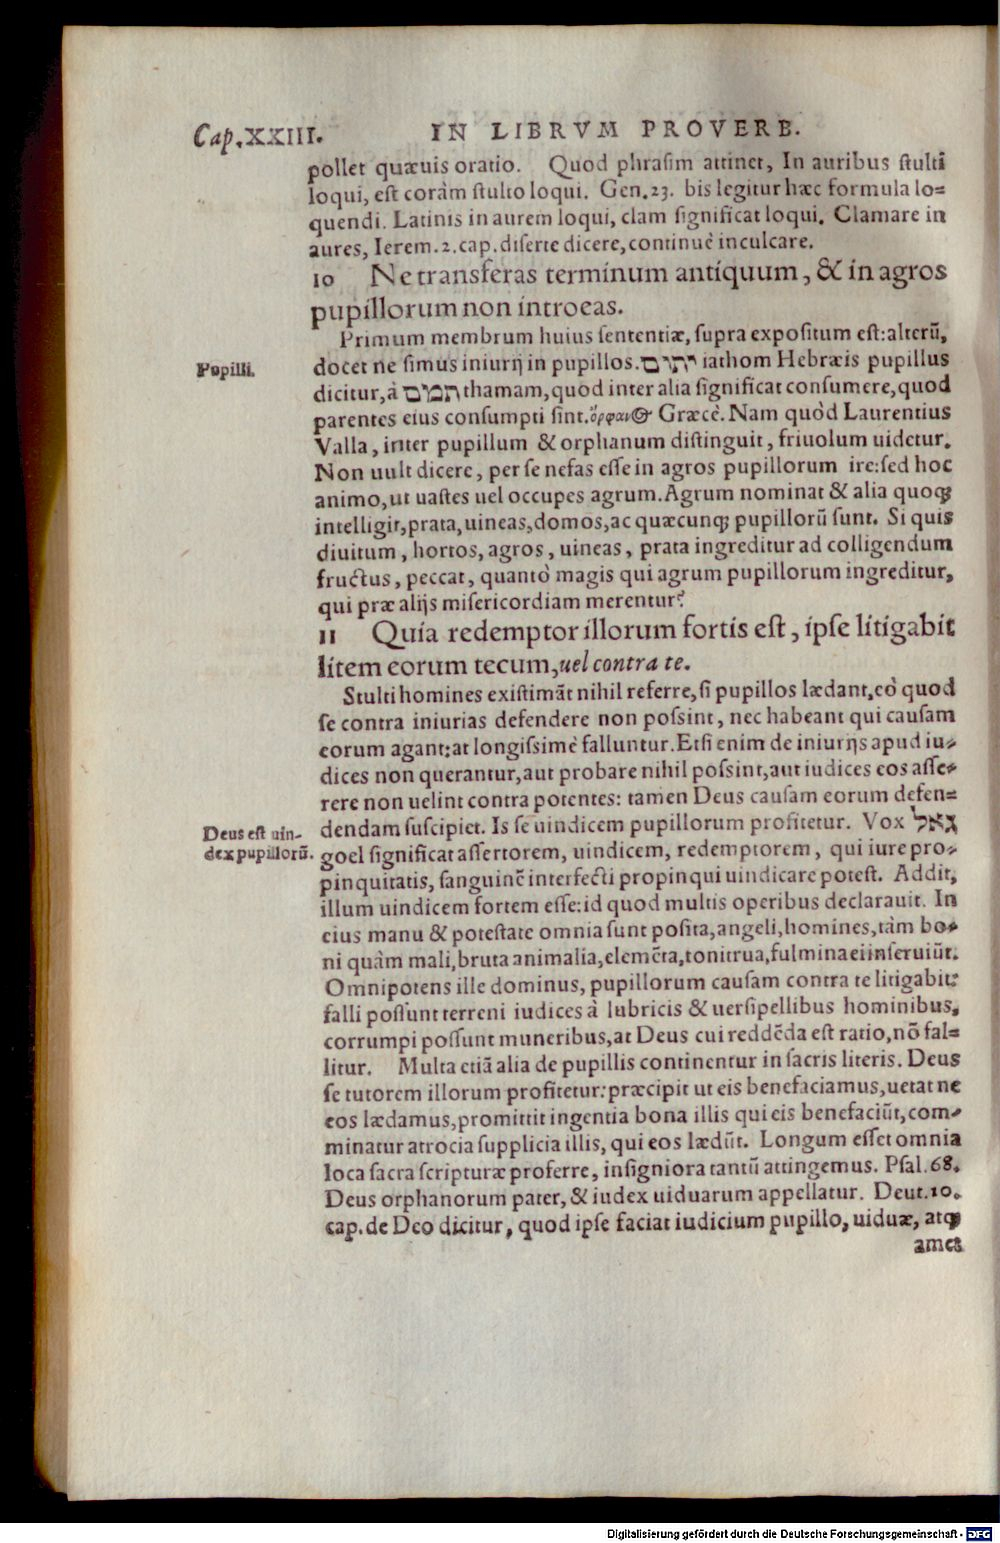 Cap. XXIII. IN LIBRVM PROVERB.
pollet quæuis oratio. Quod phrasim attinet, In auribus stulti
loqui, est coràm stulto loqui. Gen. 23. bis legitur hæc formula lo=
quendi. Latinis in aurem loqui, clam significat loqui. Clamare in
aures, Ierem. 2. cap. diserte dicere, continuè inculcare.
10 Ne transferas terminum antiquum, & in agros
pupillorum non introeas.
Primum membrum huius sententiæ, supra expositum est: alterū,
Pupilli.
docet ne simus iniurij in pupillos. יתום iathom Hebræis pupillus
dicitur, à תמם thamam, quod inter alia significat consumere, quod
parentes eius consumpti sint. ὄρφανος Græcè. Nam quòd Laurentius
Valla, inter pupillum & orphanum distinguit, friuolum uidetur.
Non uult dicere, per se nefas esse in agros pupillorum ire: sed hoc
animo, ut uastes uel occupes agrum. Agrum nominat & alia quoqꝫ
intelligit, prata, uineas, domos, ac quæcunqꝫ pupillorū sunt. Si quis
diuitum, hortos, agros, uineas, prata ingreditur ad colligendum
fructus, peccat, quantò magis qui agrum pupillorum ingreditur,
qui præ alijs misericordiam merentur?
11 Quia redemptor illorum fortis est, ipse litigabit
litem eorum tecum, uel contra te.
Stulti homines existimāt nihil referre, si pupillos lædant, eò quod
se contra iniurias defendere non possint, nec habeant qui causam
eorum agant: at longissimè falluntur. Etsi enim de iniurijs apud iu-
dices non querantur, aut probare nihil possint, aut iudices eos asse-
rere non uelint contra potentes: tamen Deus causam eorum defen=
Deus est uin-
dex pupillorū.
dendam suscipiet. Is se uindicem pupillorum profitetur. Vox גאל
goel significat assertorem, uindicem, redemptorem, qui iure pro-
pinquitatis, sanguinē interfecti propinqui uindicare potest. Addit,
illum uindicem fortem esse: id quod multis operibus declarauit. In
eius manu & potestate omnia sunt posita, angeli, homines, tàm bo-
ni quàm mali, bruta animalia, elemēta, tonitrua, fulmina ei inseruiūt.
Omnipotens ille dominus, pupillorum causam contra te litigabit:
falli possunt terreni iudices à lubricis & uersipellibus hominibus,
corrumpi possunt muneribus, at Deus cui reddēda est ratio, nō fal=
litur. Multa etiā alia de pupillis continentur in sacris literis. Deus
se tutorem illorum profitetur: præcipit ut eis benefaciamus, uetat ne
eos lædamus, promittit ingentia bona illis qui eis benefaciūt, com-
minatur atrocia supplicia illis, qui eos lædūt. Longum esset omnia
loca sacra scripturæ proferre, insigniora tantū attingemus. Psal. 68.
Deus orphanorum pater, & iudex uiduarum appellatur. Deut. 10.
cap. de Deo dicitur, quod ipse faciat iudicium pupillo, uiduæ, atqꝫ
amet
Digitalisierung gefördert durch die Deutsche Forschungsgemeinschaft - DFG